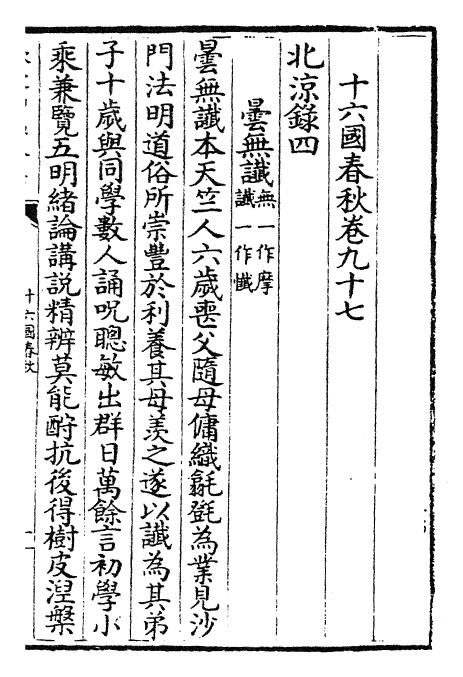 十六國春秋卷九十七
北涼錄四
曇無讖無一作摩
讖一作懺
曇無讖本天竺人六歲喪父隨母傭織氀㲪為業見沙
門法明道俗所崇豐於利養其母羨之遂以讖為其弟
子十歲與同學數人誦呪聰敏出群日萬餘言初學小
乘兼覽五明緒論講說精辨莫能酧抗後得樹皮涅槃
十六國春秋